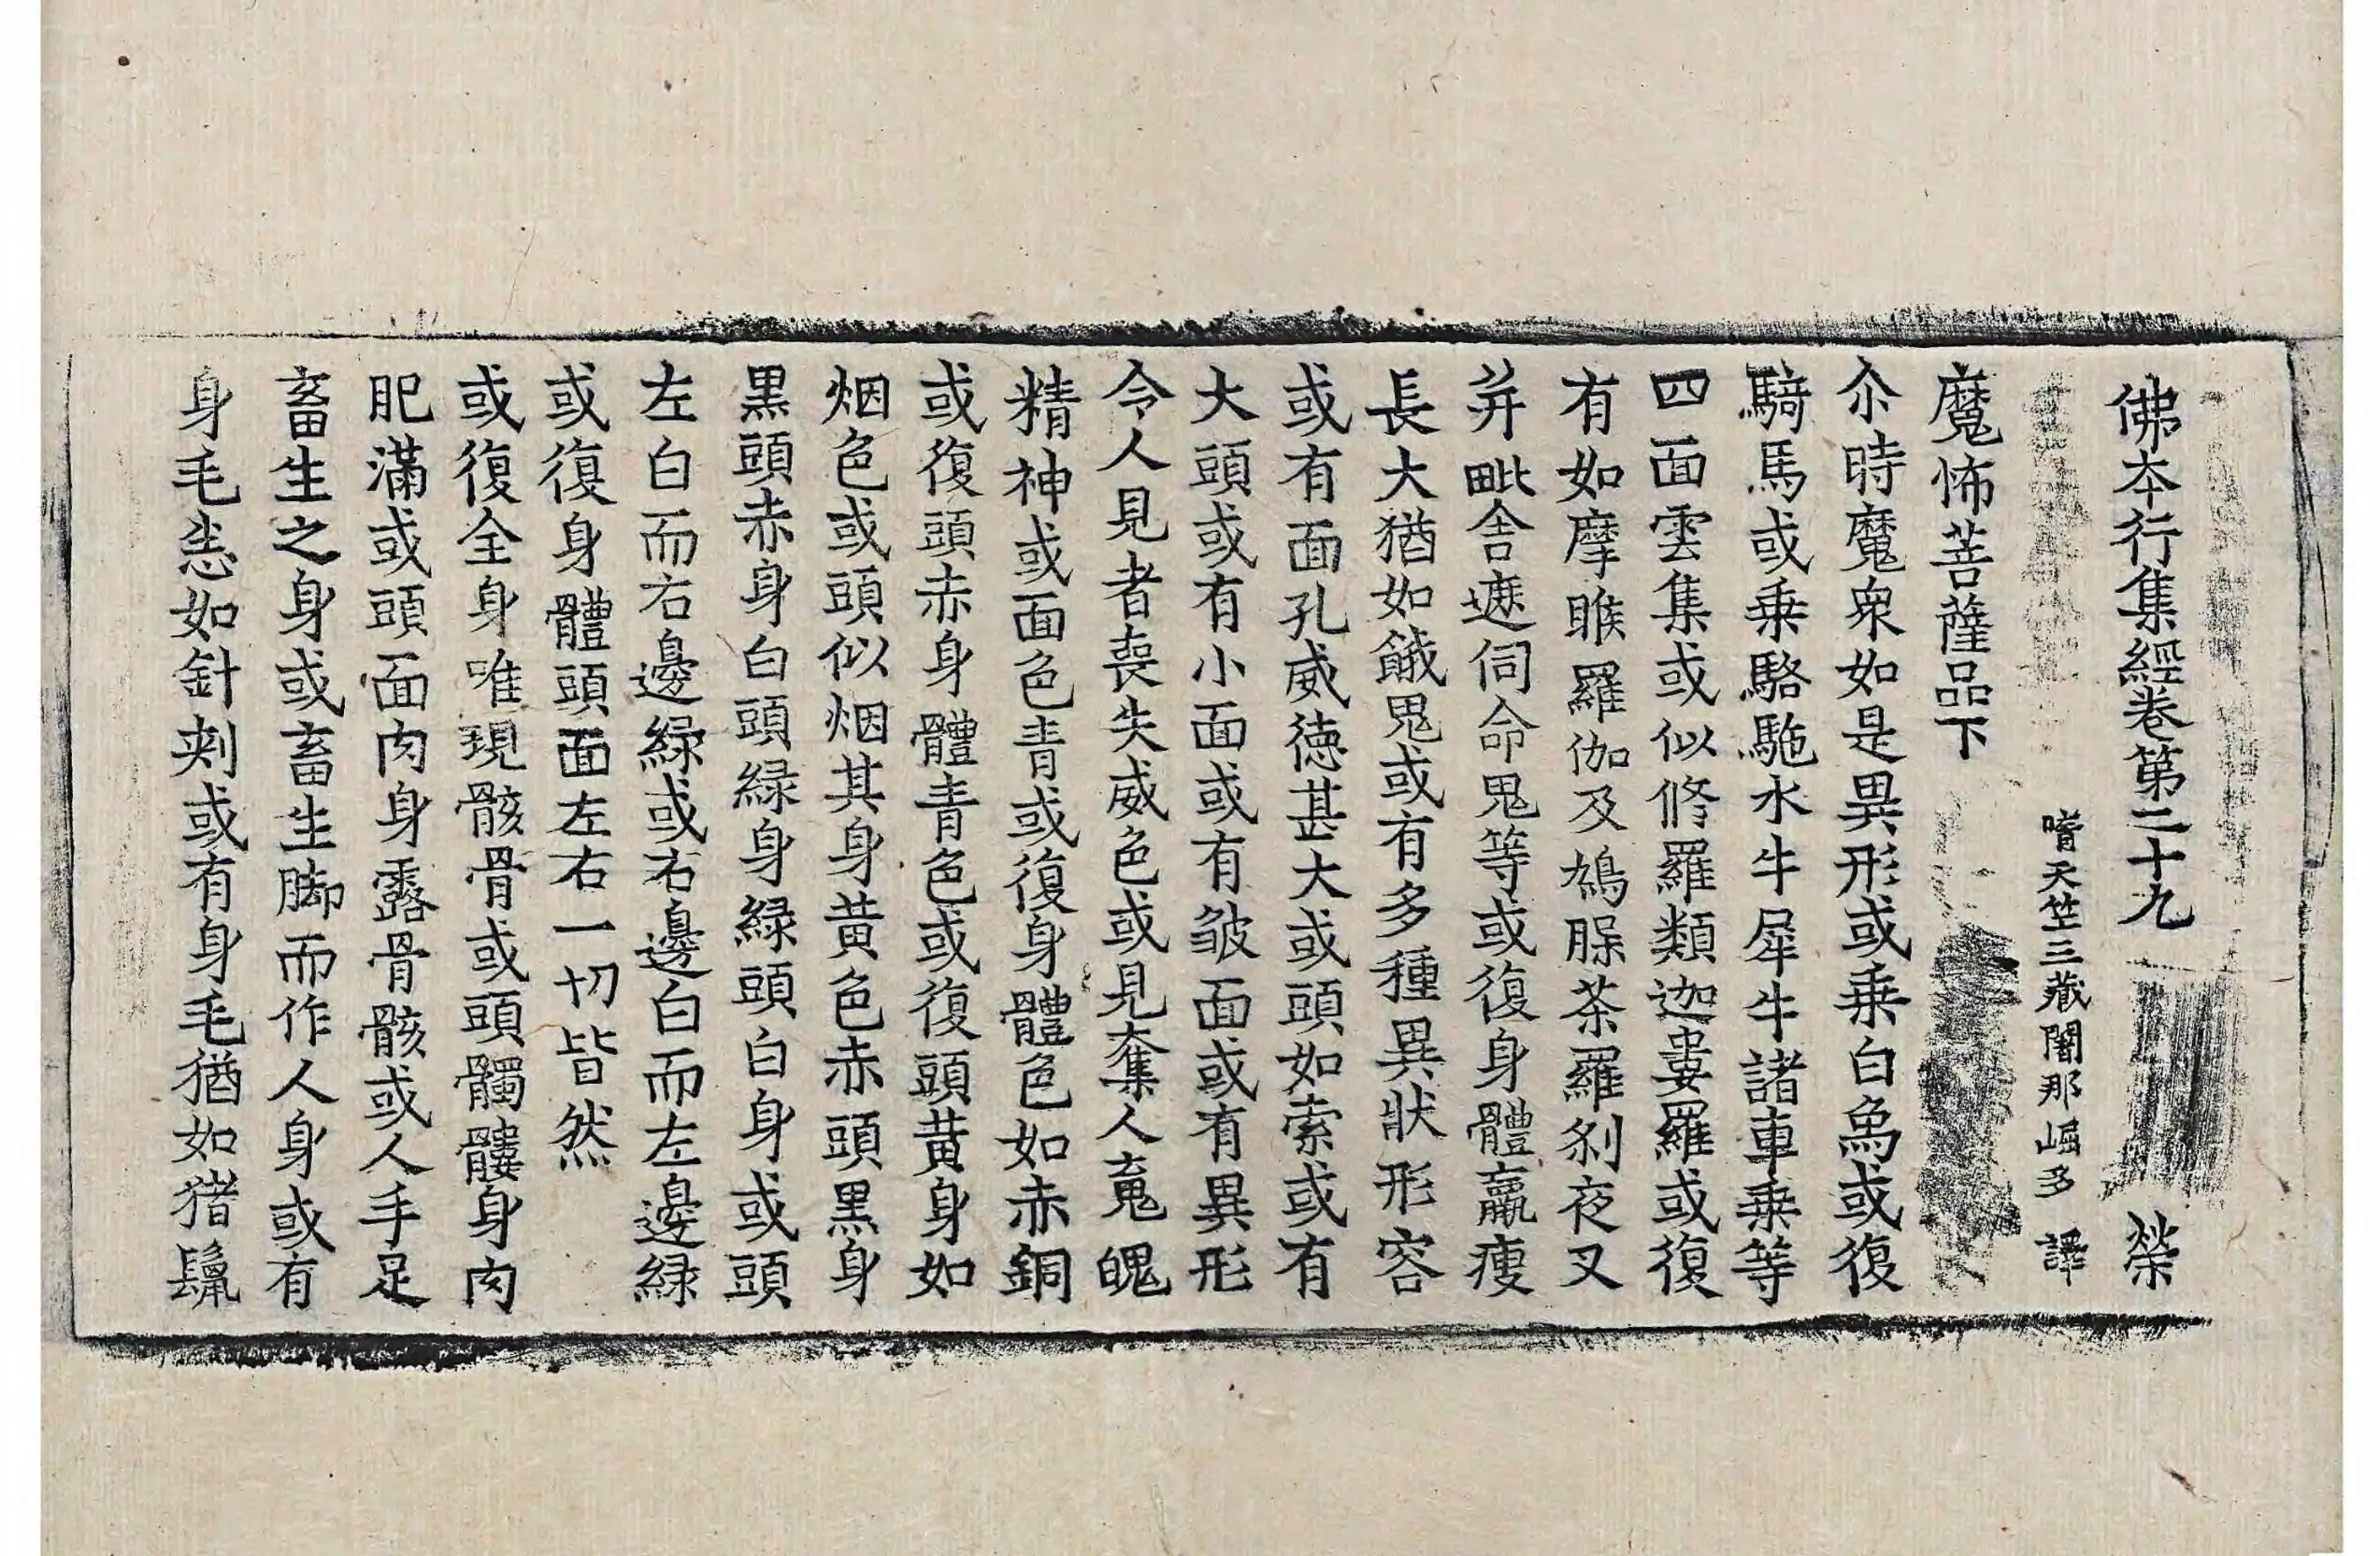 佛本行集經卷第二十九 榮
嚐天笁三藏闍那崛多 譯
魔怖菩薩品下
尒時魔衆如是異形或乗白象或復
騎馬或乗駱駞水牛犀牛諸車乗等
四面雲集或似修羅類迦婁羅或復
有如摩睺羅伽及鳩腺茶羅刹夜叉
并毗舎遮伺命鬼等或復身體羸瘦
長大猶如餓鬼或有多種異狀形容
或有面孔威徳甚大或頭如索或有
大頭或有小面或有皺面或有異形
令人見者喪失威色或見奪人䰟魄
精神或面色青或復身體色如赤銅
或復頭赤身體青色或復頭黄身如
烟色或頭似烟其身黄色赤頭黒身
黒頭赤身白頭緑身緑頭白身或頭
左白而右邊緑或右邊白而左邊緑
或復身體頭面左右一切皆然
或復全身唯現骸骨或頭髑髏身肉
肥滿或頭面肉身露骨骸或人手足
畜生之身或畜生脚而作人身或有
身毛悉如針刾或有身毛猶如猪鬛